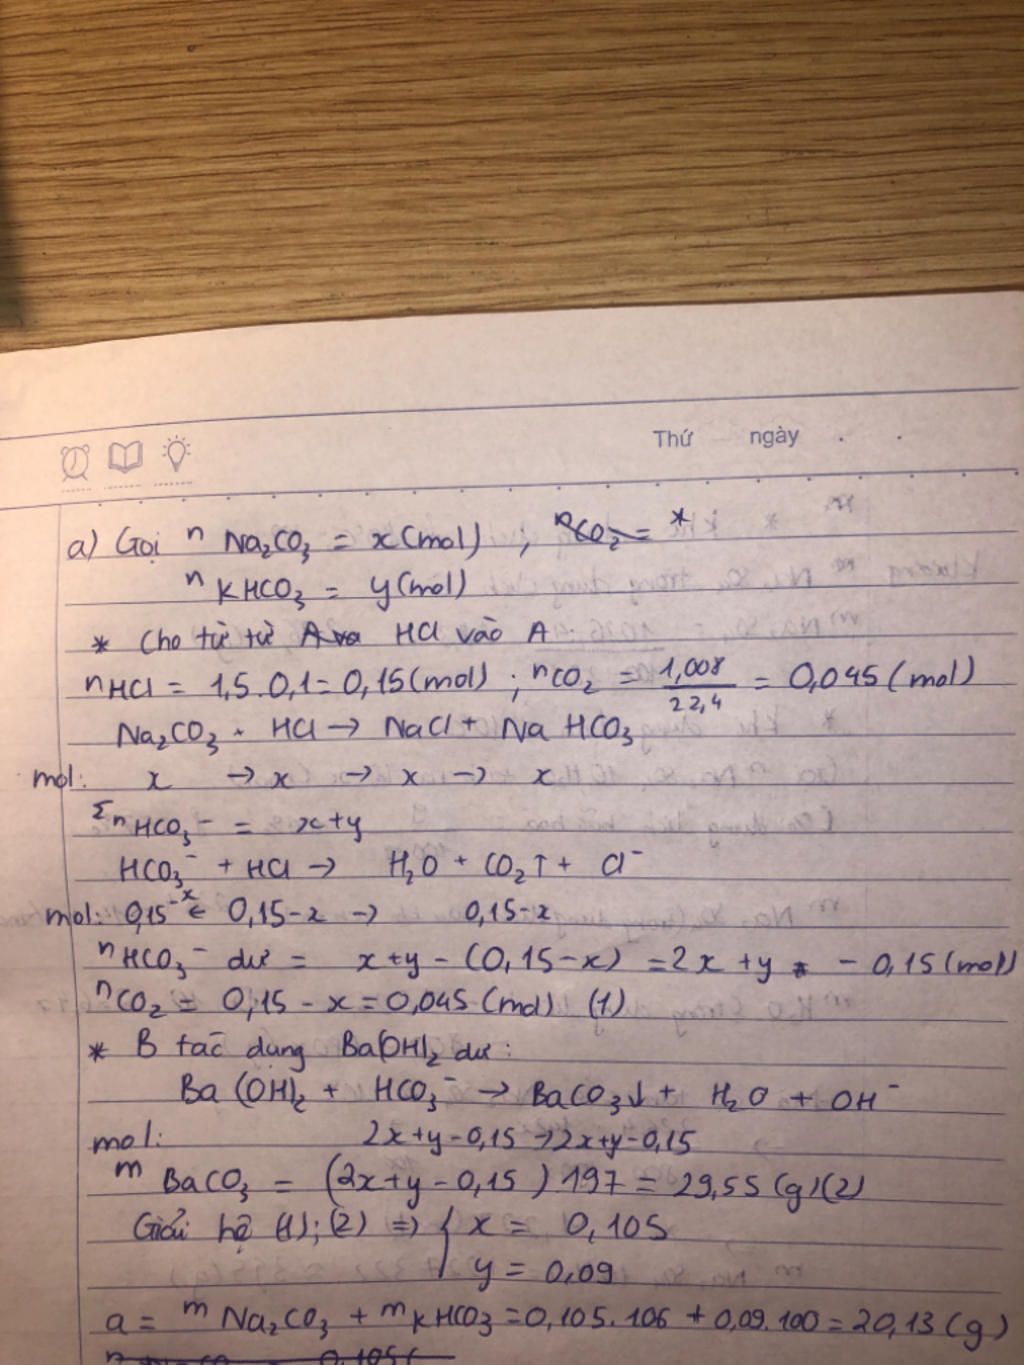 Thứ ngày . .
a) Gọi n Na₂CO₃ = x(mol) ; nCO₂ = *
n KHCO₃ = y(mol)
* Cho từ từ A và HCl vào A
nHCl = 1,5.0,1 = 0,15(mol) ; nCO₂ = 1,008/22,4 = 0,045(mol)
Na₂CO₃ + HCl → NaCl + NaHCO₃
mol: x → x → x → x
Σn HCO₃⁻ = x+y
HCO₃⁻ + HCl → H₂O + CO₂↑ + Cl⁻
mol: 0,15-x ← 0,15-x → 0,15-x
nHCO₃⁻ dư = x+y-(0,15-x) = 2x+y - 0,15(mol)
nCO₂ = 0,15 - x = 0,045(mol) (1)
* B tác dụng Ba(OH)₂ dư:
Ba(OH)₂ + HCO₃⁻ → BaCO₃↓ + H₂O + OH⁻
mol: 2x+y-0,15 → 2x+y-0,15
m BaCO₃ = (2x+y-0,15).197 = 29,55(g)(2)
Giải hệ (1);(2) => { x = 0,105
y = 0,09
a = m Na₂CO₃ + m KHCO₃ = 0,105.106 + 0,09.100 = 20,13(g)